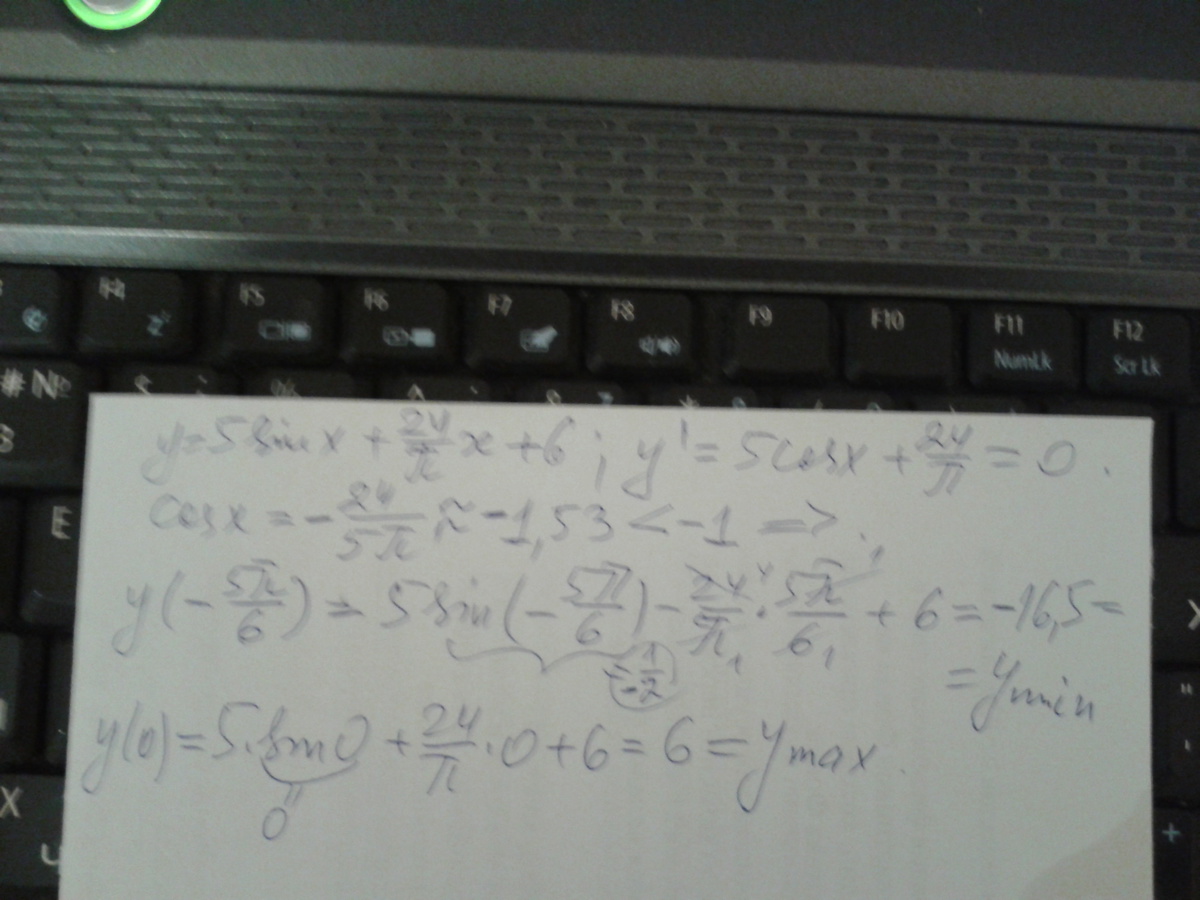 F4 F5 F6 F7 F8 F9 F10 F11 F12
z
NumLk Scr Lk
# №
3
E
X
Ч
y=5sinx + 24/π x + 6 ; y' = 5cosx + 24/π = 0 .
cosx = - 24/5π ≈ -1,53 < -1 => .
y(- 5π/6) = 5 sin(- 5π/6) - 24/π · 5π/6 + 6 = -16,5 =
= - 1/2
= y min
y(0) = 5·sin0 + 24/π · 0 + 6 = 6 = y max .
0